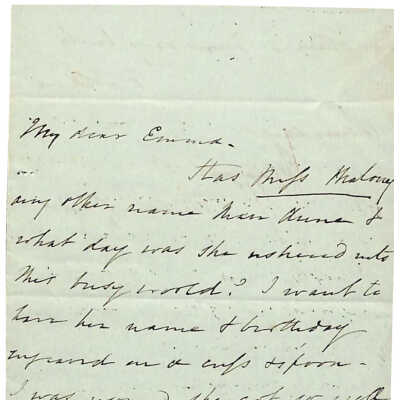 My dear Emma.
Has Miss Maloney
any other name than Anne &
what day was she ushered into
this busy world? I want to
have her name & birthday
engraved on a cup & spoon.
I was she got so